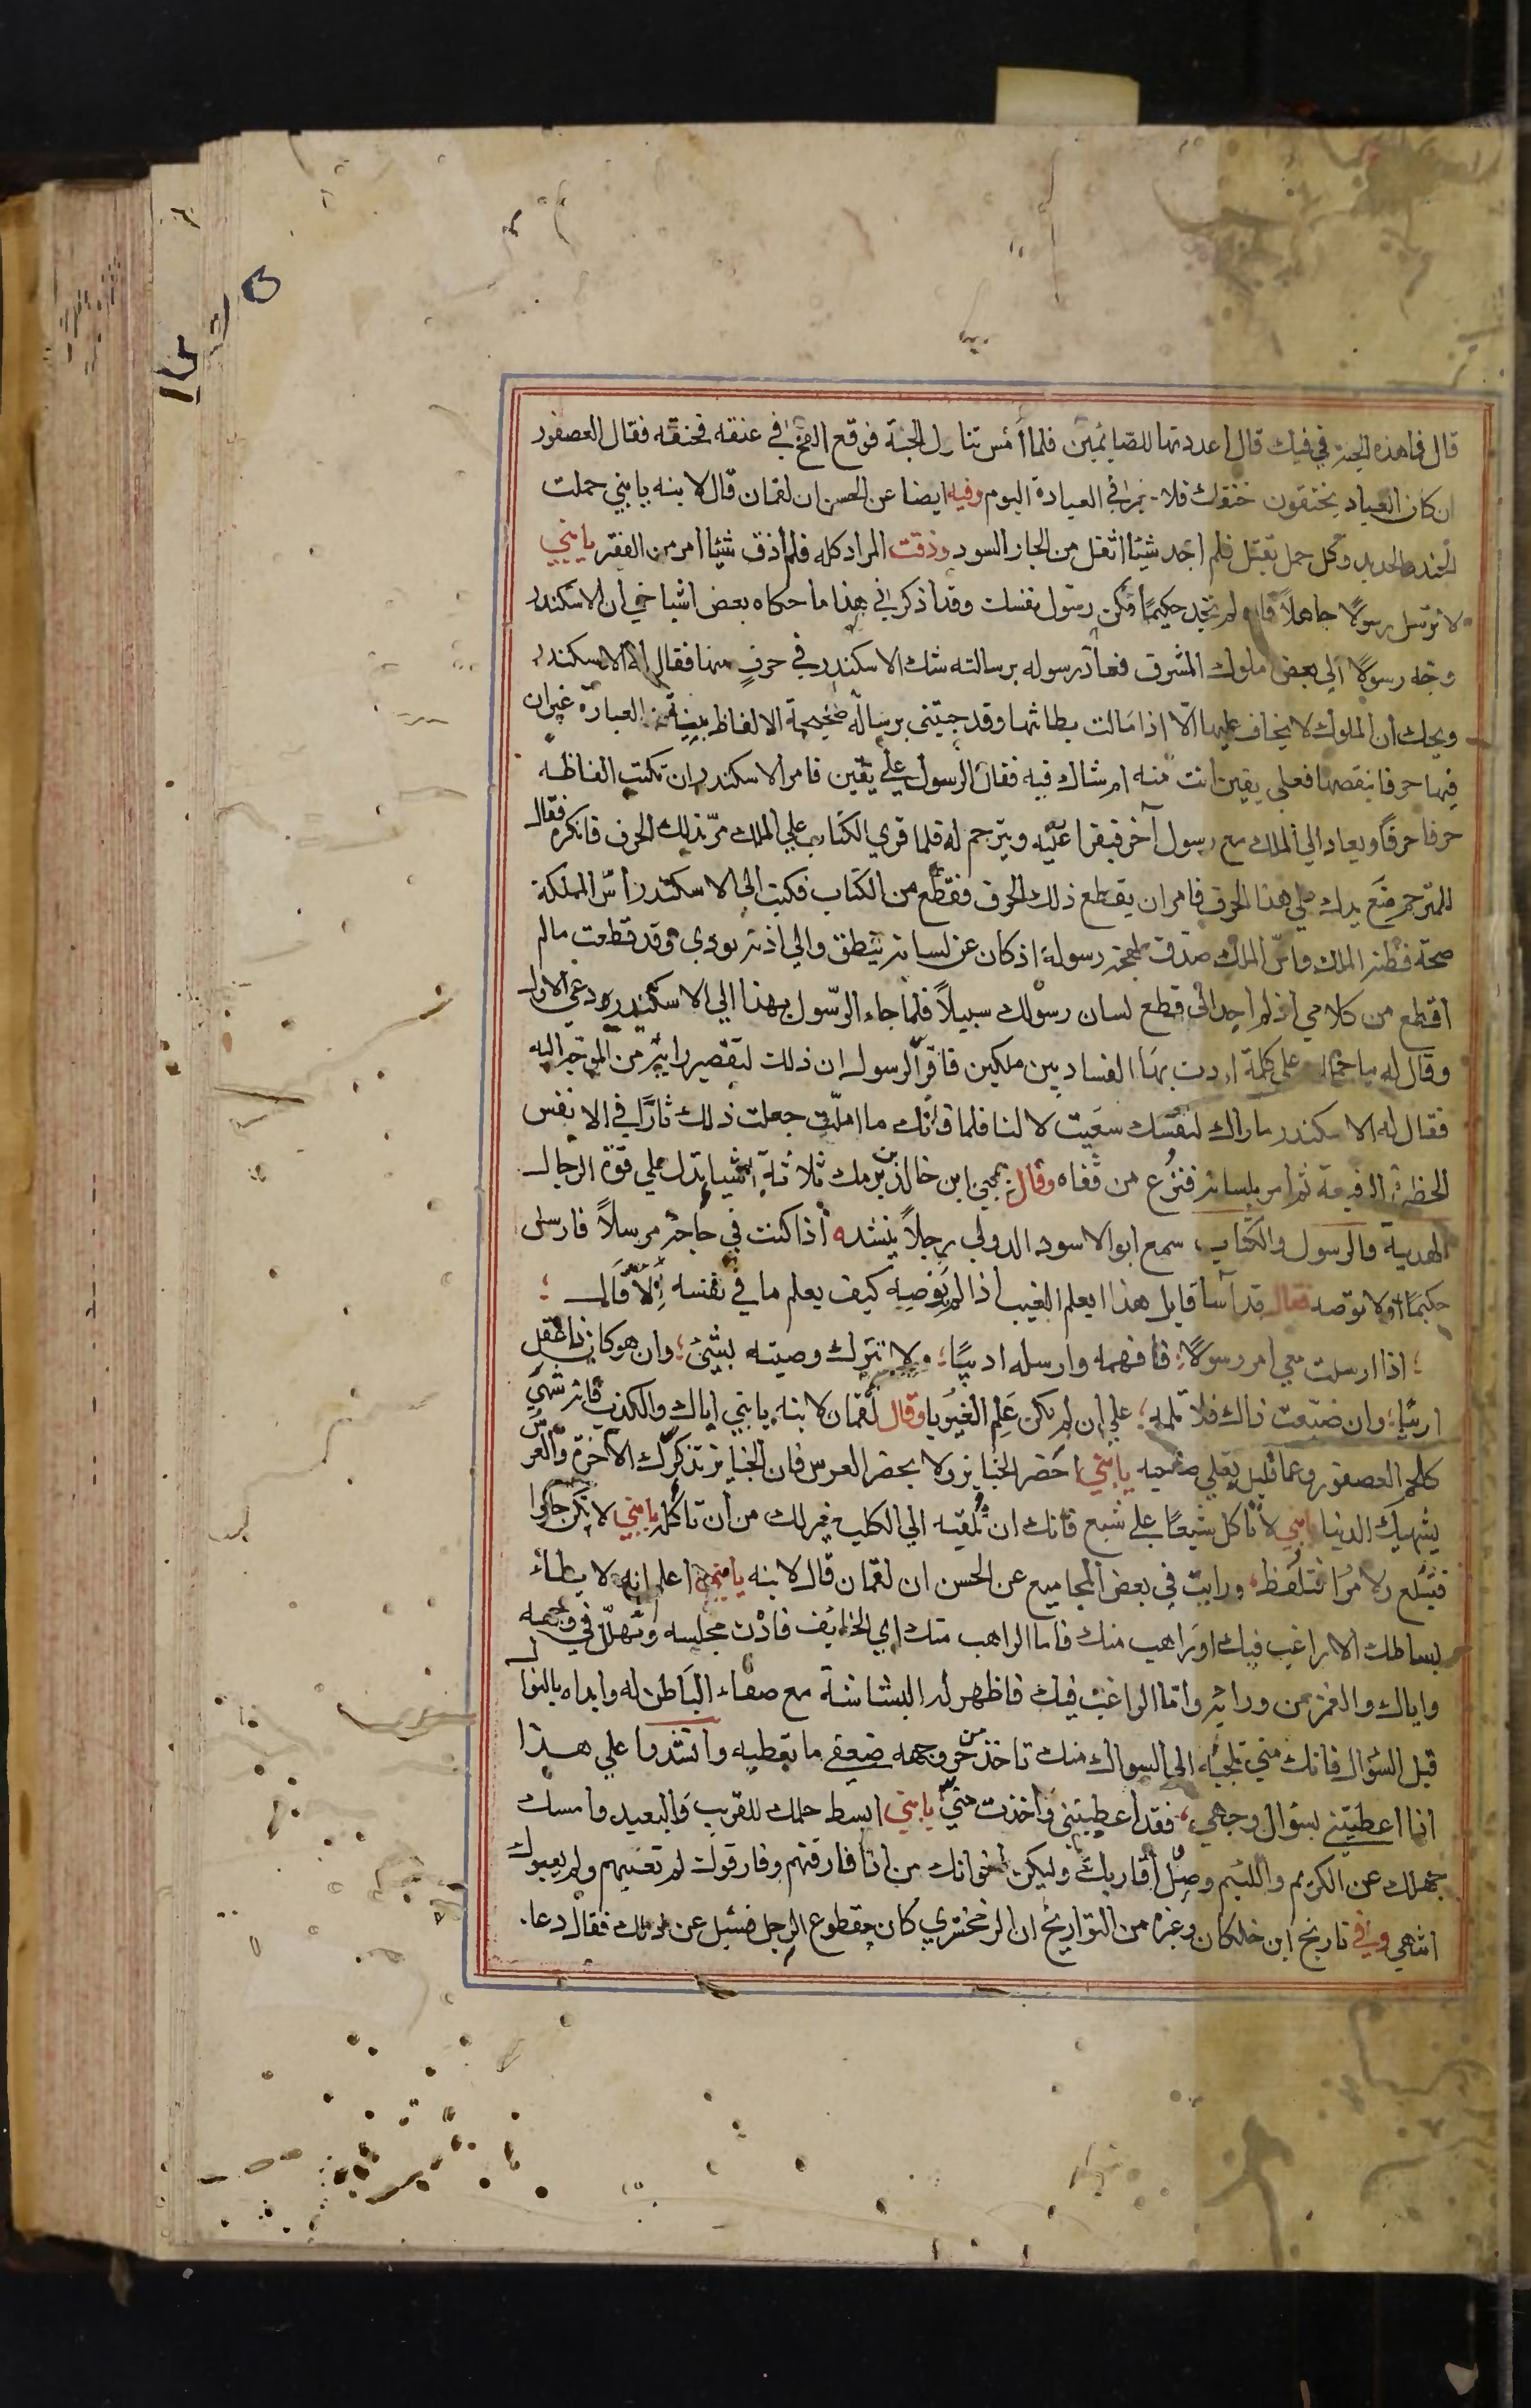 قال فما هذه الحبة في فيك قال اعددتها للصايمين فلما امس تناول الحبة فوقع الفخ في عنقه فخنقه فقال العصفور
ان كان العباد يختقون خنقك فلا خير في العبادة اليوم وفيه ايضا عن الحسن ان لقمان قال لابنه يا بني حملت
الجندل والحديد وكل حمل ثقيل فلم اجد شيئا اثقل من الجار السود وذقت المرار كله فلم اذق شيئا امر من الفقر يا بني
لا ترسل رسولا جاهلا فان لم تجد حكيما فكن رسول نفسك وقد اذكرني هذا ما حكاه بعض اشياخي ان الاسكندر
وجه رسولا الي بعض ملوك المشرق فعاد رسوله برسالته شك الاسكندر في حرف منها فقال له الاسكندر
ويحك ان الملوك لا يخاف عليها الا اذا مالت بطانتها وقد جيتني برسالة صحيحة الالفاظ بينة العبارة غير ان
فيها حرفا ينقصها فعلي يقين انت منه ام شاك فيه فقال الرسول علي يقين فامر الاسكندر ان تكتب الفاظه
حرفا حرفا ويعاد الي الملك مع رسول آخر فيقرا عليه ويترجم له فلما قري الكتاب علي الملك مر بذلك الحرف فانكره فقال
للمترجم ضع يدك علي هذا الحرف فامر ان يقطع ذلك الحرف فقطع من الكتاب فكتب الي الاسكندر راس المملكة
صحة فطنة الملك واس الملك صدق لهجة رسوله اذ كان عن لسانه ينطق والي اذنه يودي وقد قطعت مالم
اقطع من كلامي اذ لم اجد الي قطع لسان رسولك سبيلا فلما جاء الرسول بهذا الي الاسكندر ودعي الاول
وقال له ما حملك علي كلمة اردت بها الفساد بين ملكين فاقر الرسول ان ذلك لتقصير رايه من الموجه اليه
فقال له الاسكندر ما اراك لنفسك سعيت لا لنا فلما فاتك ما املت جعلت ذلك ثارا في الانفس
الخطرة الرفيعة ثم امر بلسانه فنزع من قفاه وقال يحيي ابن خالد بن برمك ثلاثة اشيا تدل علي قوة الرجال
الهدية والرسول والكتاب سمع ابو الاسود الدولي رجلا ينشد اذا كنت في حاجة مرسلا فارسل
حكيما ولا توصه فقال قد آسا قايل هذا ايعلم الغيب اذا لم يوصيه كيف يعلم ما في نفسه الا قال
اذا ارسلت في امر رسولا فافهمه وارسله اديبا ولا تترك وصيته بشيئ وان هو كان ذا عقل
اريبا وان ضيعت ذاك فلا تلمه علي ان لم يكن علم الغيوبا وقال لقمان لابنه يا بني اياك والكذب فانه شهي
كلحم العصفور وعما قليل يقلي صاحبه يا بني احضر الجنايز ولا يحضر العرس فان الجنايز تذكرك الآخرة والعرس
يشهيك الدنيا يا بني لا تاكل شبعا علي شبع فانك ان تلقيه الي الكلب خير لك من ان تاكله يا بني لا تكن حلوا
فتبلع ولا مرا فتلفظ ورايت في بعض المجاميع عن الحسن ان لقمان قال لابنه يا بني اعلم انه لا يطاء
بساطك الا راغب فيك او راهب منك فاما الراهب منك اي الخايف فادن مجلسه وتهلل في وجهه
واياك والغمز من ورايه واما الراغب فيك فاظهر له البشاشة مع صفاء الباطن له وابداه بالنوال
قبل السؤال فانك متي تلجئه الي السوال منك تاخذ من حر وجهه ضعفي ما تعطيه وانشدوا علي هذا
اذا اعطيتني بسؤال وجهي فقد اعطيتني واخذت مني يا بني ابسط حلمك للقريب والبعيد وامسك
جهلك عن الكريم واللئيم وصل اقاربك وليكن اخوانك من اذا فارقتهم وفارقوك لم تعيبهم ولم يعيبوك
انتهي وفي تاريخ ابن خلكان وغيره من التواريخ ان الزمخشري كان مقطوع الرجل فسئل عن ذلك فقال دعا